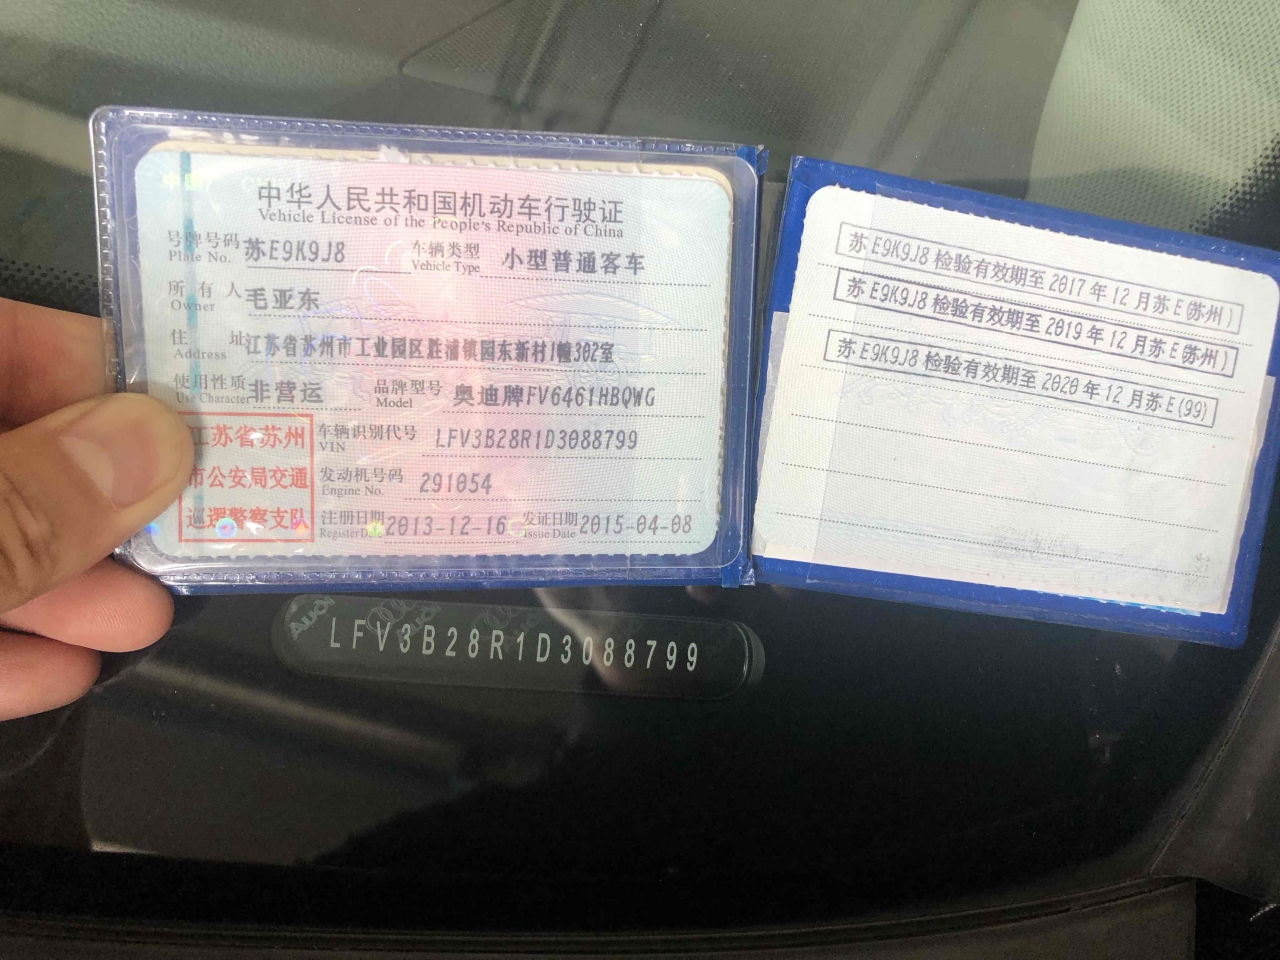 中华人民共和国机动车行驶证
Vehicle License of the People's Republic of China
号牌号码 苏E9K9J8 车辆类型 小型普通客车
Plate No. Vehicle Type
所有人 毛亚东
Owner
住址 江苏省苏州市工业园区胜浦镇园东新村1幢302室
Address
使用性质 非营运 品牌型号 奥迪牌FV6461HBQWG
Use Character Model
江苏省苏州
市公安局交通
巡逻警察支队
车辆识别代号 LFV3B28R1D3088799
VIN
发动机号码 291054
Engine No.
注册日期 2013-12-16 发证日期 2015-04-08
Register Date Issue Date
苏E9K9J8 检验有效期至 2017 年 12 月苏 E(苏州)
苏 E9K9J8 检验有效期至 2019 年 12 月苏 E(苏州)
苏 E9K9J8 检验有效期至 2020 年 12 月苏 E(99)
LFV3B28R1D3088799